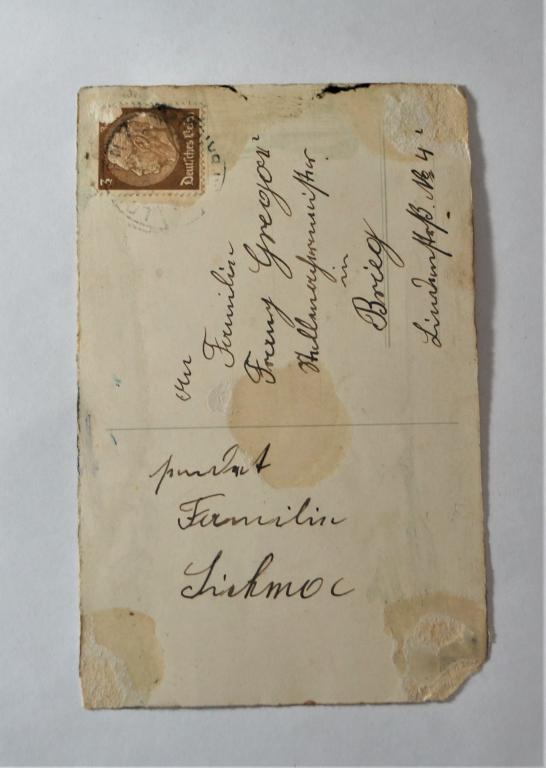 3
Deutsches Reich
An
Familie
Franz Gregor
Stellmachermeister
in
Brieg
Lindenstraß. № 4
sendet
Familie